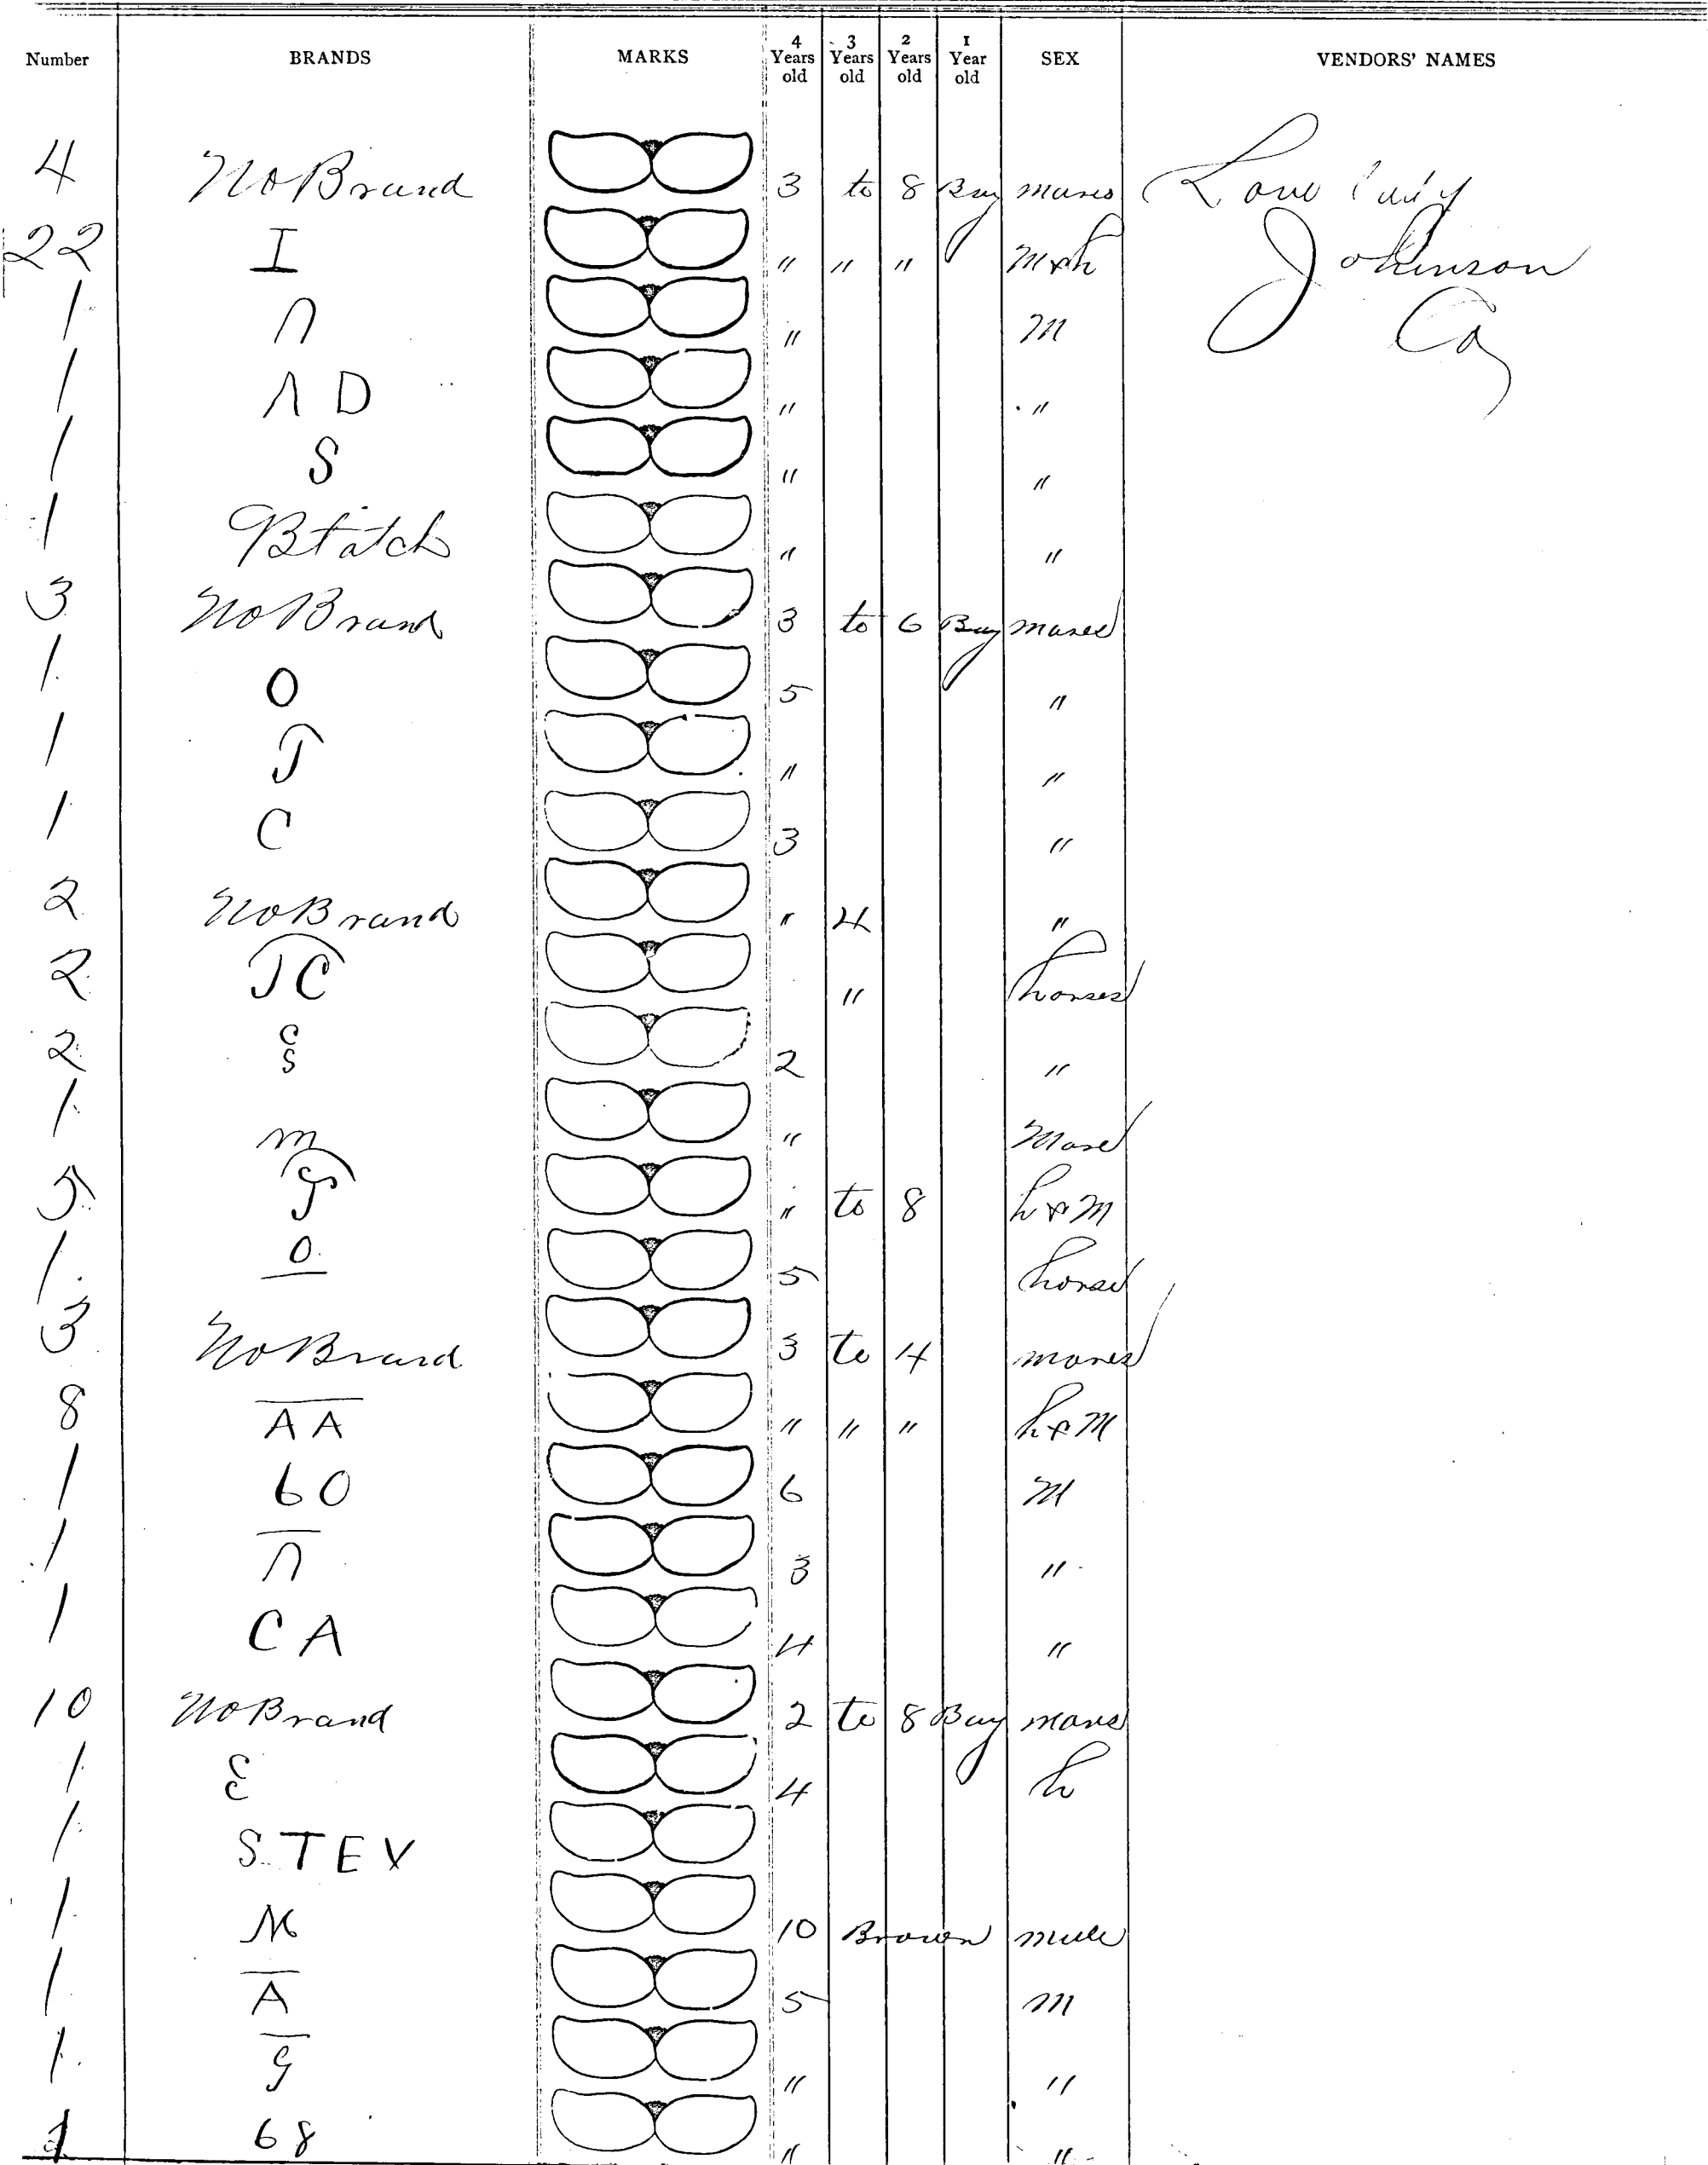 Number BRANDS MARKS 4 Years old 3 Years old 2 Years old 1 Year old SEX VENDORS' NAMES
4 No Brand 3 to 8 Bay mares Love
22 I " " " M & h Johnson
1 " M Co
1 Λ D " "
1 S " "
1 Blatch " "
3 No Brand 3 to 6 Bay mares
1 O 5 "
1 J " "
1 C 3 "
2 No Brand " 4 "
2 JC " horses
2 C S 2 "
1 m " Mare
5 " to 8 h & M
1 O 5 horse
3 No Brand 3 to 4 mares
8 A A " " " h & M
1 60 6 M
1 3 "
1 C A 4 "
10 No Brand 2 to 8 Bay mares
1 4 h
1 S TEX
1 10 Brown mule
1 A 5 M
1 G " "
1 68 " "